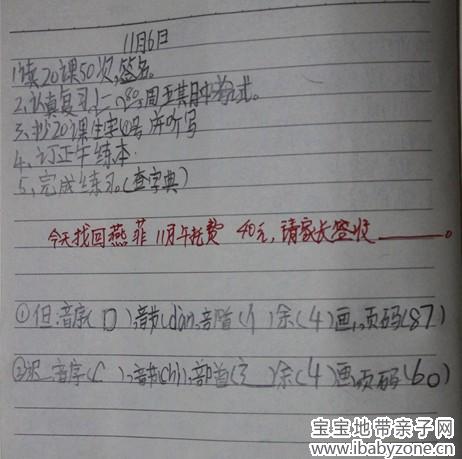 11月6日
1.读20课50次,签名。
2.认真复习一~80,周五其月中考试。
3.抄20课生字4号并听写
4、订正午练本
5、完成练习。(查字典)
今天找回燕菲 11月午托费 40元,请家长签收______。
①但 音序(D),音节(dàn),部首(亻)余(4)画,页码(87)
②迟 音字(C),音节(chí),部首(辶)余(4)画,页码(60)
宝宝地带亲子网
www.ibabyzone.cn